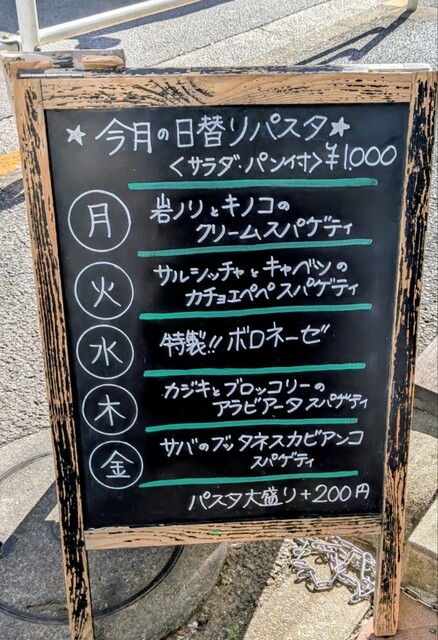 ★今月の日替りパスタ★
<サラダ・パン付>¥1,000
月 岩ノリとキノコの
クリームスパゲティ
火 サルシッチャとキャベツの
カチョエペペスパゲティ
水 特製!! ボロネーゼ
木 カジキとブロッコリーの
アラビアータスパゲティ
金 サバのプッタネスカビアンコ
スパゲティ
パスタ大盛り+200円